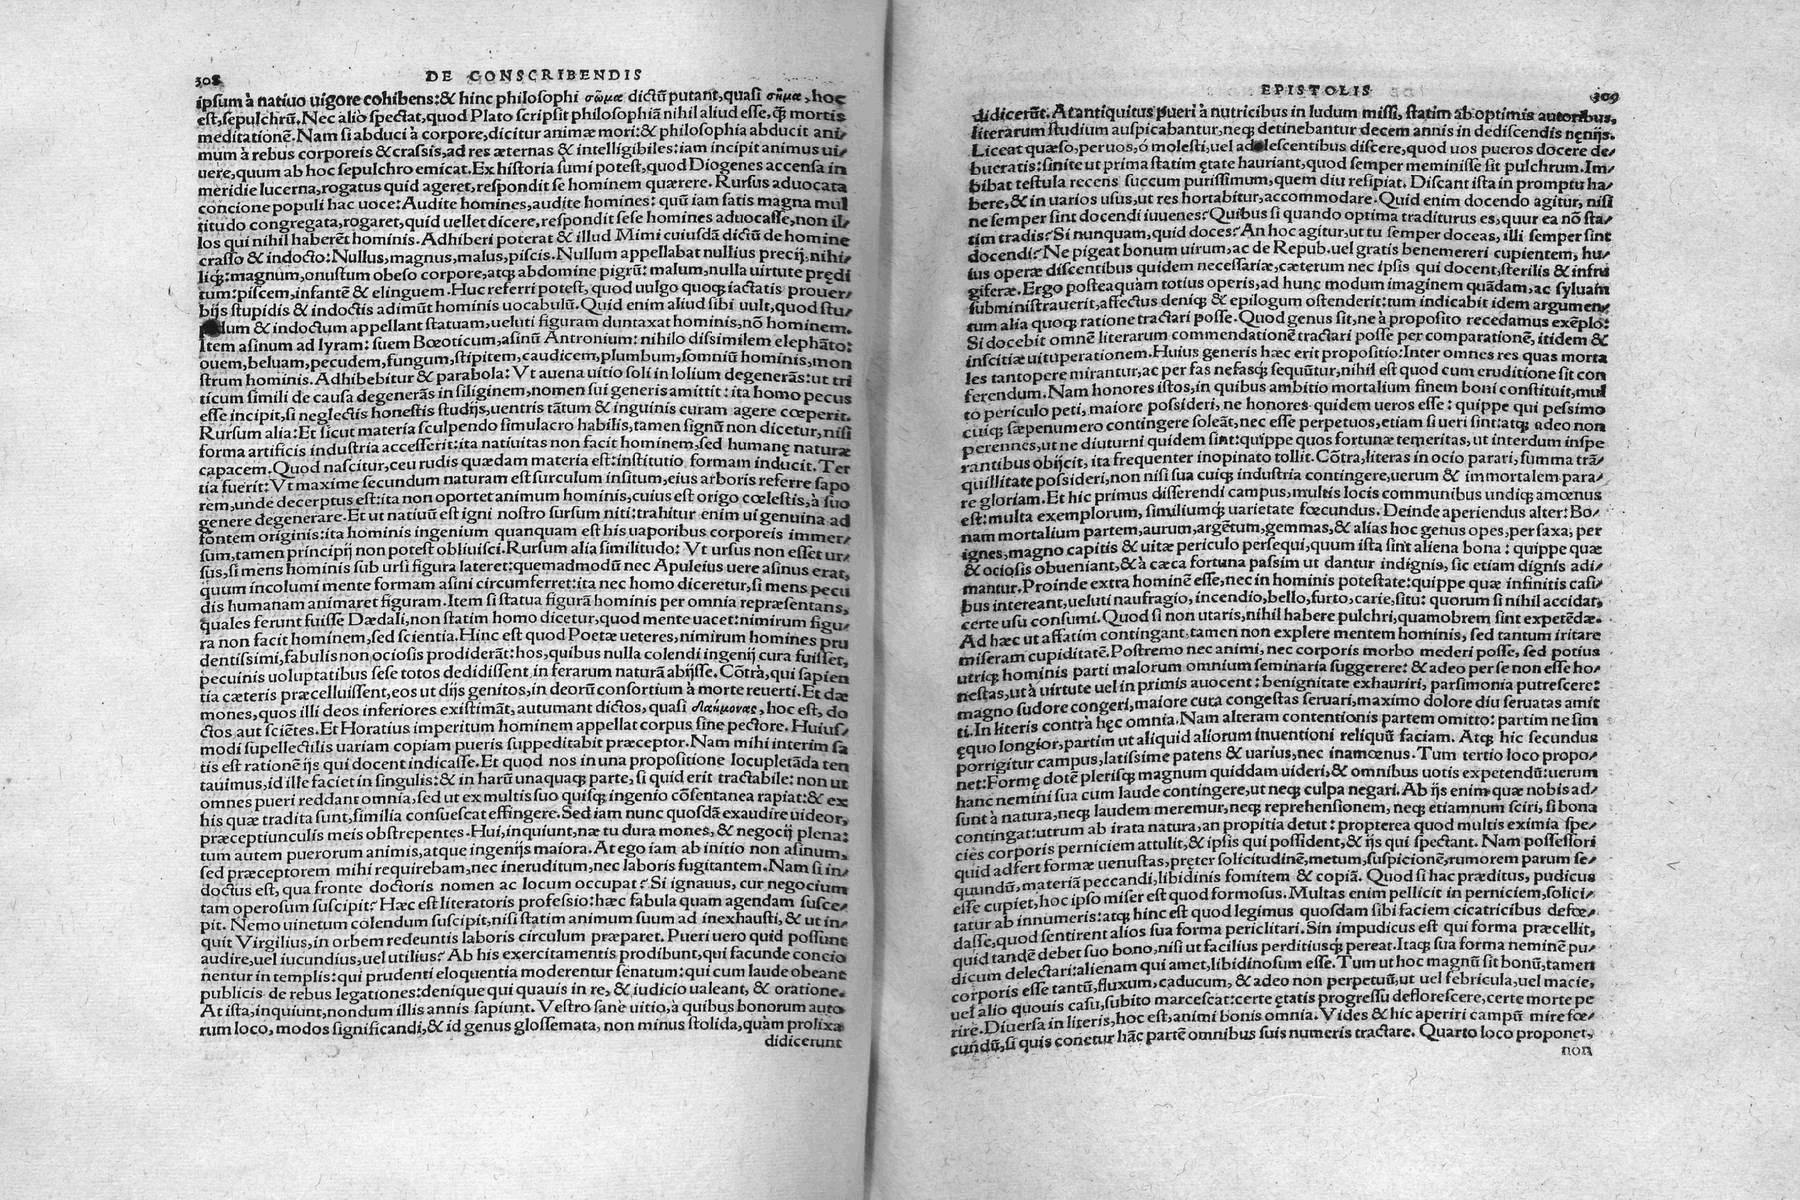 308 DE CONSCRIBENDIS
ipsum à natiuo uigore cohibens:& hinc philosophi σῶμα dictũ putant,quasi σῆμα, hoc
est,sepulchrũ. Nec alio spectat,quod Plato scripsit philosophiã nihil aliud esse, q̃ mortis
meditationẽ. Nam si abduci à corpore,dicitur animæ mori:& philosophia abducit ani/
mum à rebus corporeis & crassis,ad res æternas & intelligibiles:iam incipit animus ui/
uere,quum ab hoc sepulchro emicat. Ex historia sumi potest,quod Diogenes accensa in
meridie lucerna,rogatus quid ageret,respondit se hominem quærere. Rursus aduocata
concione populi hac uoce: Audite homines,audite homines: quũ iam satis magna mul
titudo congregata,rogaret,quid uellet dicere,respondit sese homines aduocasse,non il/
los qui nihil haberẽt hominis. Adhiberi poterat & illud Mimi cuiusdã dictũ de homine
crasso & indocto: Nullus,magnus,malus,piscis. Nullum appellabat nullius precij,nihi/
liq́;:magnum,onustum obeso corpore,atq; abdomine pigrũ: malum,nulla uirtute prędi
tum:piscem,infantẽ & elinguem. Huc referri potest, quod uulgo quoq; iactatis prouer/
bijs stupidis & indoctis adimũt hominis uocabulũ. Quid enim aliud sibi uult,quod stu/
pidum & indoctum appellant statuam,ueluti figuram duntaxat hominis,nõ hominem.
Item asinum ad lyram: suem Bœoticum,asinũ Antronium: nihilo dissimilem elephãto:
ouem,beluam,pecudem,fungum,stipitem,caudicem,plumbum,somniũ hominis,mon
strum hominis. Adhibebitur & parabola: Vt auena uitio soli in lolium degenerãs:ut tri
ticum simili de causa degenerãs in siliginem,nomen sui generis amittit: ita homo pecus
esse incipit,si neglectis honestis studijs,uentris tãtum & inguinis curam agere cœperit.
Rursum alia:Et sicut materia sculpendo simulacro habilis,tamen signũ non dicetur,nisi
forma artificis industria accesserit:ita natiuitas non facit hominem,sed humanę naturæ
capacem. Quod nascitur,ceu rudis quædam materia est:institutio formam inducit. Ter
tia fuerit: Vt maxime secundum naturam est surculum insitum,eius arboris referre sapo
rem,unde decerptus est:ita non oportet animum hominis,cuius est origo cœlestis,à suo
genere degenerare. Et ut natiuũ est igni nostro sursum niti: trahitur enim ui genuina ad
fontem originis:ita hominis ingenium quanquam est his uaporibus corporeis immer/
sum,tamen principij non potest obliuisci. Rursum alia similitudo: Vt ursus non esset ur/
sus,si mens hominis sub ursi figura lateret:quemadmodũ nec Apuleius uere asinus erat,
quum incolumi mente formam asini circumferret:ita nec homo diceretur,si mens pecu
dis humanam animaret figuram. Item si statua figurã hominis per omnia repræsentans,
quales ferunt fuisse Dædali,non statim homo dicetur,quod mente uacet:nimirum figu/
ra non facit hominem,sed scientia. Hinc est quod Poetæ ueteres,nimirum homines pru
dentissimi,fabulis non ociosis prodiderãt:hos,quibus nulla colendi ingenij cura fuisset,
pecuinis uoluptatibus sese totos dedidissent,in ferarum naturã abijsse. Cõtrà,qui sapien
tia cæteris præcelluissent,eos ut dijs genitos,in deorũ consortium à morte reuerti. Et dæ
mones,quos illi deos inferiores existimãt,autumant dictos,quasi δαήμονας, hoc est, do
ctos aut sciẽtes. Et Horatius imperitum hominem appellat corpus sine pectore. Huius/
modi supellectilis uariam copiam pueris suppeditabit præceptor. Nam mihi interim sa
tis est rationẽ ijs qui docent indicasse. Et quod nos in una propositione locupletãda ten
tauimus,id ille faciet in singulis:& in harũ unaquaq; parte, si quid erit tractabile: non ut
omnes pueri reddant omnia,sed ut ex multis suo quisq; ingenio cõsentanea rapiat:& ex
his quæ tradita sunt,similia consuescat effingere. Sed iam nunc quosdã exaudire uideor,
præceptiunculis meis obstrepentes. Hui,inquiunt,næ tu dura mones, & negocij plena:
tum autem puerorum animis,atque ingenijs maiora. At ego iam ab initio non asinum,
sed præceptorem mihi requirebam,nec ineruditum,nec laboris fugitantem. Nam si in/
doctus est, qua fronte doctoris nomen ac locum occupat? Si ignauus, cur negocium
tam operosum suscipit? Hæc est literatoris professio:hæc fabula quam agendam susce/
pit. Nemo uinetum colendum suscipit,nisi statim animum suum ad inexhausti, & ut in/
quit Virgilius,in orbem redeuntis laboris circulum præparet. Pueri uero quid possunt
audire,uel iucundius,uel utilius? Ab his exercitamentis prodibunt,qui facunde concio
nentur in templis:qui prudenti eloquentia moderentur senatum:qui cum laude obeant
publicis de rebus legationes:denique qui quauis in re, & iudicio ualeant, & oratione.
At ista,inquiunt,nondum illis annis sapiunt. Vestro sanè uitio,à quibus bonorum auto
rum loco, modos significandi,& id genus glossemata, non minus stolida,quàm prolixa
didicerunt
EPISTOLIS 309
didicerũt. At antiquitus pueri à nutricibus in ludum missi, statim ab optimis autoribus,
literarum studium auspicabantur,neq; detinebantur decem annis in dediscendis nęnijs.
Liceat quæso,per uos,ó molesti,uel adolescentibus discere,quod uos pueros docere de/
bueratis:sinite ut prima statim ętate hauriant,quod semper meminisse sit pulchrum. Im/
bibat testula recens succum purissimum,quem diu resipiat. Discant ista in promptu ha/
bere,& in uarios usus,ut res hortabitur,accommodare. Quid enim docendo agitur, nisi
ne semper sint docendi iuuenes? Quibus si quando optima traditurus es,quur ea nõ sta/
tim tradis? Si nunquam,quid doces? An hoc agitur,ut tu semper doceas, illi semper sint
docendi? Ne pigeat bonum uirum,ac de Repub.uel gratis benemereri cupientem, hu/
ius operæ discentibus quidem necessariæ,cæterum nec ipsis qui docent,sterilis & infru
giferæ. Ergo posteaquàm totius operis,ad hunc modum imaginem quãdam,ac syluam
subministrauerit,affectus deniq; & epilogum ostenderit:tum indicabit idem argumen/
tum alia quoq; ratione tractari posse. Quod genus sit,ne à proposito recedamus exẽplo:
Si docebit omnẽ literarum commendationẽ tractari posse per comparationẽ, itidem &
inscitiæ uituperationem. Huius generis hæc erit propositio:Inter omnes res quas morta
les tantopere mirantur,ac per fas nefasq́; sequũtur,nihil est quod cum eruditione sit con
ferendum. Nam honores istos,in quibus ambitio mortalium finem boni constituit,mul
to periculo peti, maiore possideri, ne honores quidem ueros esse: quippe qui pessimo
cuiq; sæpenumero contingere soleãt,nec esse perpetuos,etiam si ueri sint:atq; adeo non
perennes,ut ne diuturni quidem sint:quippe quos fortunæ temeritas, ut interdum inspe
rantibus obijcit, ita frequenter inopinato tollit. Cõtra,literas in ocio parari, summa trã/
quillitate possideri,non nisi sua cuiq; industria contingere,uerum & immortalem para/
re gloriam. Et hic primus disserendi campus,multis locis communibus undiq; amœnus
est:multa exemplorum, similiumq́; uarietate fœcundus. Deinde aperiendus alter: Bo/
nam mortalium partem,aurum,argẽtum,gemmas,& alias hoc genus opes,per saxa; per
ignes,magno capitis & uitæ periculo persequi,quum ista sint aliena bona: quippe quæ
& ociosis obueniant,& à cæca fortuna passim ut dantur indignis, sic etiam dignis adi/
mantur. Proinde extra hominẽ esse,nec in hominis potestate:quippe quæ infinitis casi/
bus intereant,ueluti naufragio, incendio,bello,furto,carie,situ: quorum si nihil accidat,
certe usu consumi. Quod si non utaris,nihil habere pulchri,quamobrem sint expetẽdæ.
Ad hæc ut affatim contingant,tamen non explere mentem hominis, sed tantum iritare
miseram cupiditatẽ. Postremo nec animi, nec corporis morbo mederi posse, sed potius
utriq; hominis parti malorum omnium seminaria suggerere: & adeo per se non esse ho/
nestas,ut à uirtute uel in primis auocent: benignitate exhauriri, parsimonia putrescere:
magno sudore congeri,maiore cura congestas seruari,maximo dolore diu seruatas amit
ti. In literis contrà hęc omnia. Nam alteram contentionis partem omitto: partim ne sim
ęquo longior,partim ut aliquid aliorum inuentioni reliquũ faciam. Atq; hic secundus
porrigitur campus,latissime patens & uarius,nec inamœnus. Tum tertio loco propo/
net:Formę dotẽ plerisq; magnum quiddam uideri,& omnibus uotis expetendũ:uerum
hanc nemini sua cum laude contingere,ut neq; culpa negari. Ab ijs enim quæ nobis ad/
sunt à natura,neq; laudem meremur,neq; reprehensionem, neq; etiamnum sciri, si bona
contingat:utrum ab irata natura,an propitia detut: propterea quod multis eximia spe/
cies corporis perniciem attulit,& ipsis qui possident,& ijs qui spectant. Nam possessori
quid adfert formæ uenustas,pręter solicitudinẽ,metum,suspicionẽ,rumorem parum se/
quundũ,materiã peccandi,libidinis fomitem & copiã. Quod si hac præditus, pudicus
esse cupiet,hoc ipso miser est quod formosus. Multas enim pellicit in perniciem,solici/
tatur ab innumeris:atq; hinc est quod legimus quosdam sibi faciem cicatricibus defœ/
dasse,quod sentirent alios sua forma periclitari. Sin impudicus est qui forma præcellit,
quid tandẽ debet suo bono,nisi ut facilius perditiusq́; pereat. Itaq; sua forma neminẽ pu/
dicum delectari:alienam qui amet,libidinosum esse. Tum ut hoc magnũ sit bonũ,tamen
corporis esse tantũ,fluxum, caducum, & adeo non perpetuũ,ut uel febricula,uel macie,
uel alio quouis casu,subito marcescat:certe ętatis progressu deflorescere,certe morte pe
rire. Diuersa in literis,hoc est,animi bonis omnia. Vides & hic aperiri campũ mire fœ/
cundũ,si quis conetur hãc partẽ omnibus suis numeris tractare. Quarto loco proponet,
non